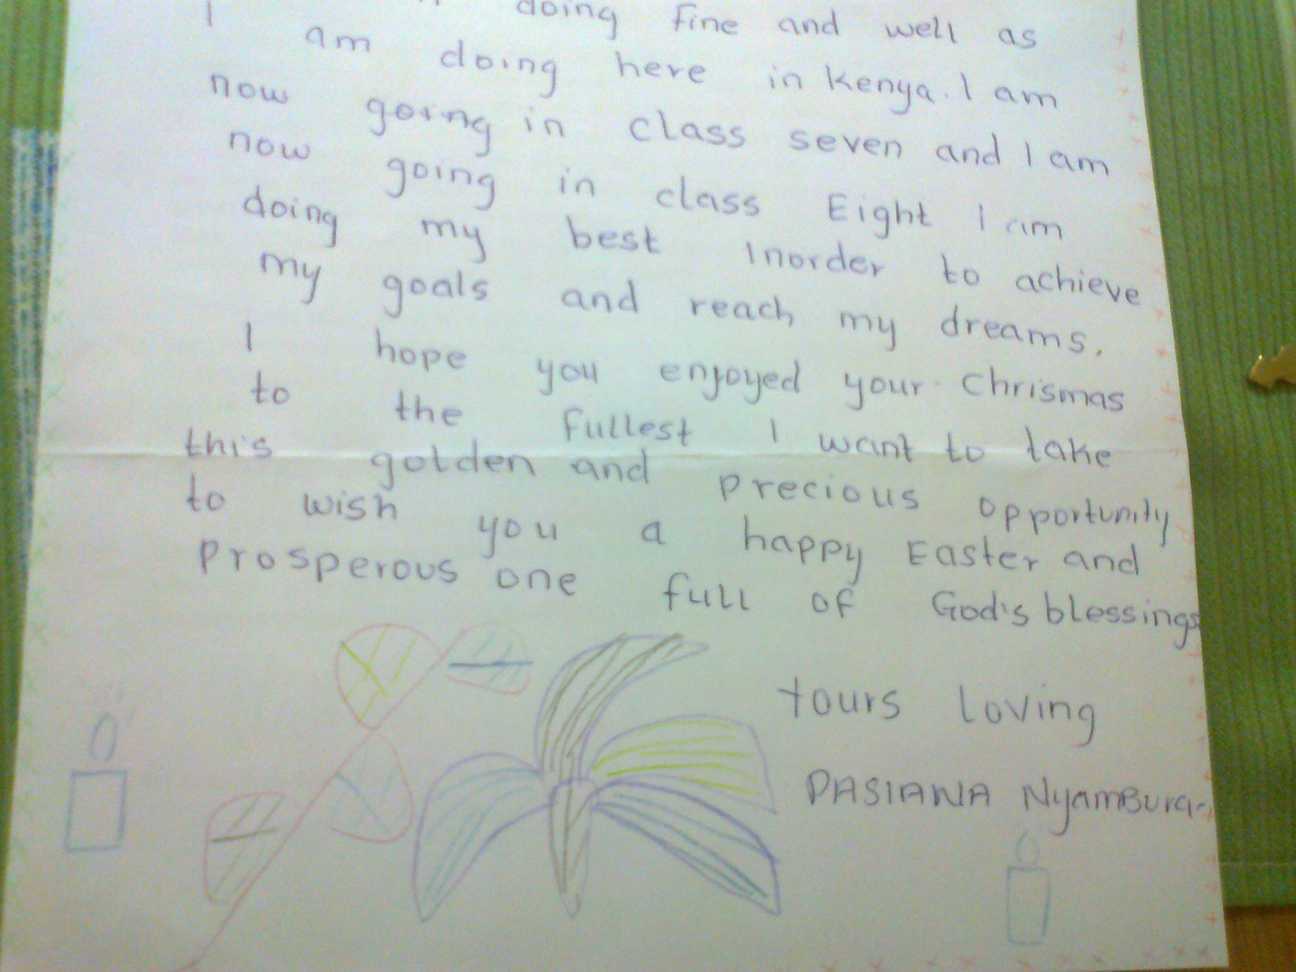 I doing fine and well as
am doing here in Kenya. I am
now going in class seven and I am
now going in class Eight I am
doing my best Inorder to achieve
my goals and reach my dreams.
I hope you enjoyed your Chrismas
to the fullest I want to take
this golden and precious opportunity
to wish you a happy Easter and
prosperous one full of God's blessings
Yours loving
PASIANA NyamBura